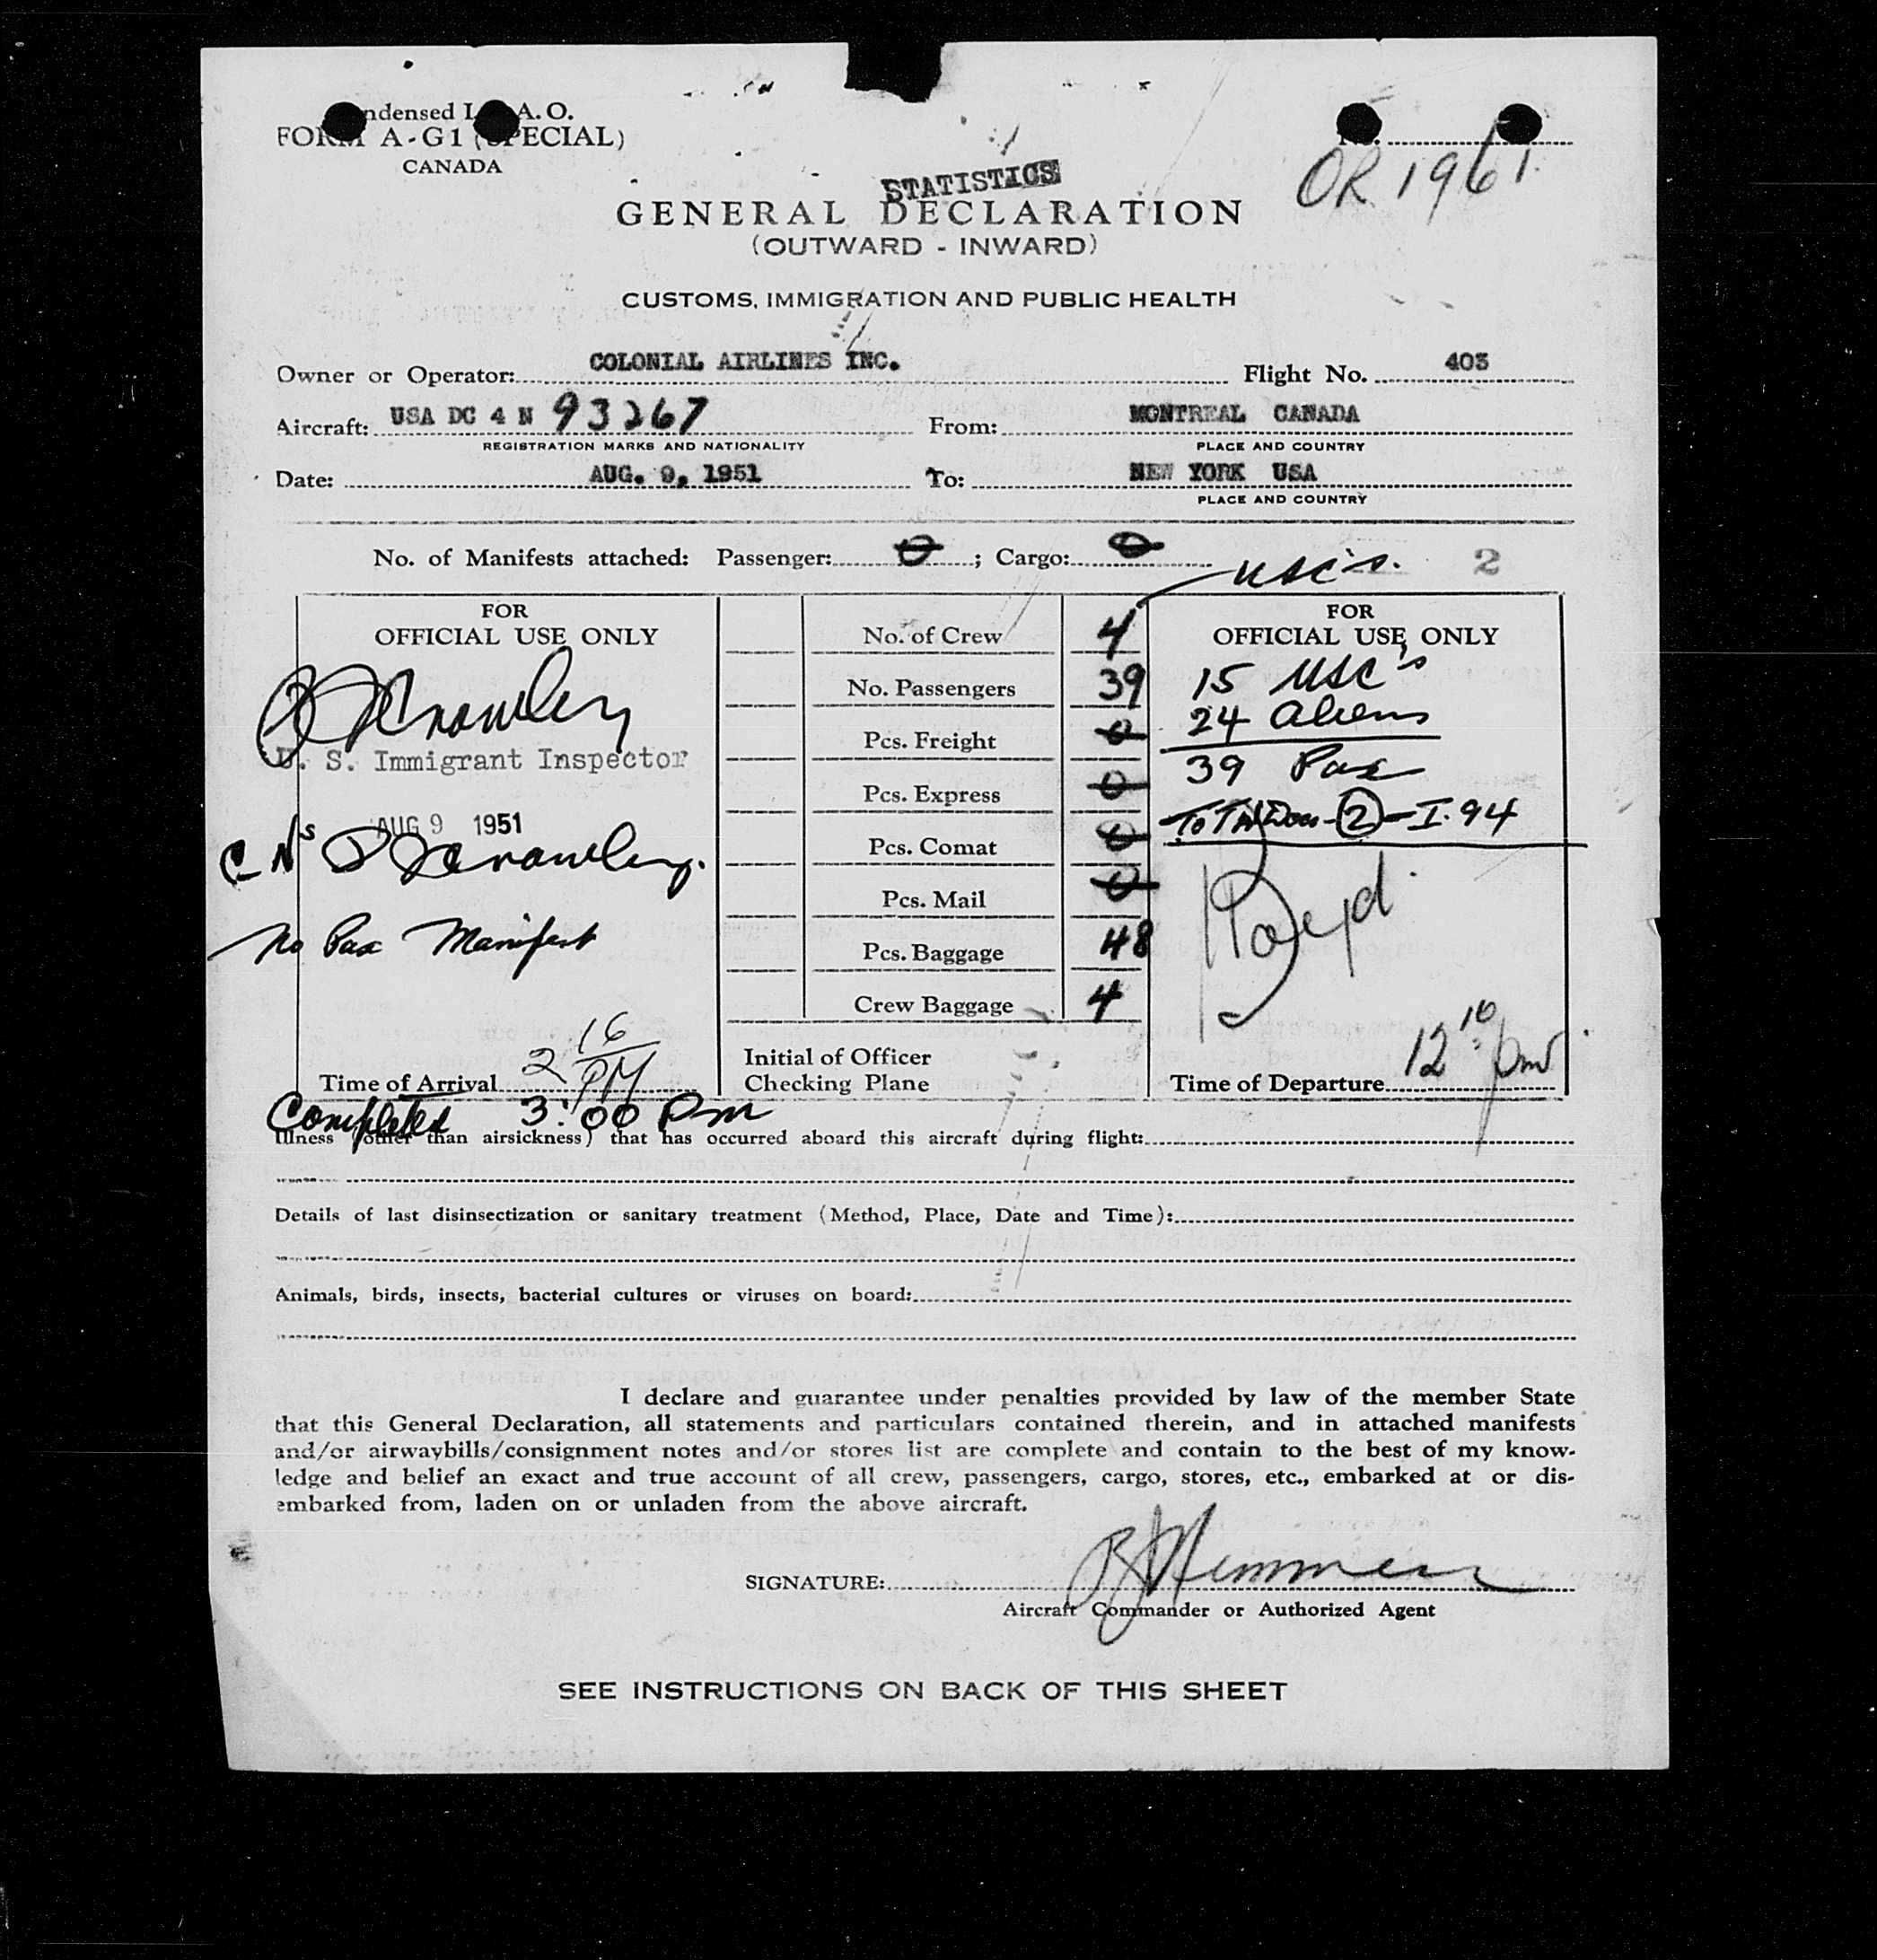 ndensed I A. O.
FORM A-G1 (SPECIAL)
CANADA
OR 1961
STATISTICS
GENERAL DECLARATION
(OUTWARD - INWARD)
CUSTOMS, IMMIGRATION AND PUBLIC HEALTH
Owner or Operator: COLONIAL AIRLINES INC. Flight No. 403
Aircraft: USA DC 4 N 93267 From: MONTREAL CANADA
REGISTRATION MARKS AND NATIONALITY PLACE AND COUNTRY
Date: AUG. 9, 1951 To: NEW YORK USA
PLACE AND COUNTRY
No. of Manifests attached: Passenger: 0 ; Cargo: 0 USC's. 2
FOR
OFFICIAL USE ONLY
U. S. Immigrant Inspector
AUG 9 1951
No Pax Manifest
Time of Arrival 2 16 PM
Completed 3:00 Pm
No. of Crew 4
No. Passengers 39
Pcs. Freight 0
Pcs. Express 0
Pcs. Comat 0
Pcs. Mail 0
Pcs. Baggage 48
Crew Baggage 4
Initial of Officer
Checking Plane
FOR
OFFICIAL USE ONLY
15 USC's
24 Aliens
39 Pax
2 - I-94
Time of Departure 12:10 pm
Illness (other than airsickness) that has occurred aboard this aircraft during flight:
Details of last disinsectization or sanitary treatment (Method, Place, Date and Time):
Animals, birds, insects, bacterial cultures or viruses on board:
I declare and guarantee under penalties provided by law of the member State
that this General Declaration, all statements and particulars contained therein, and in attached manifests
and/or airwaybills/consignment notes and/or stores list are complete and contain to the best of my know-
ledge and belief an exact and true account of all crew, passengers, cargo, stores, etc., embarked at or dis-
embarked from, laden on or unladen from the above aircraft.
SIGNATURE:
Aircraft Commander or Authorized Agent
SEE INSTRUCTIONS ON BACK OF THIS SHEET